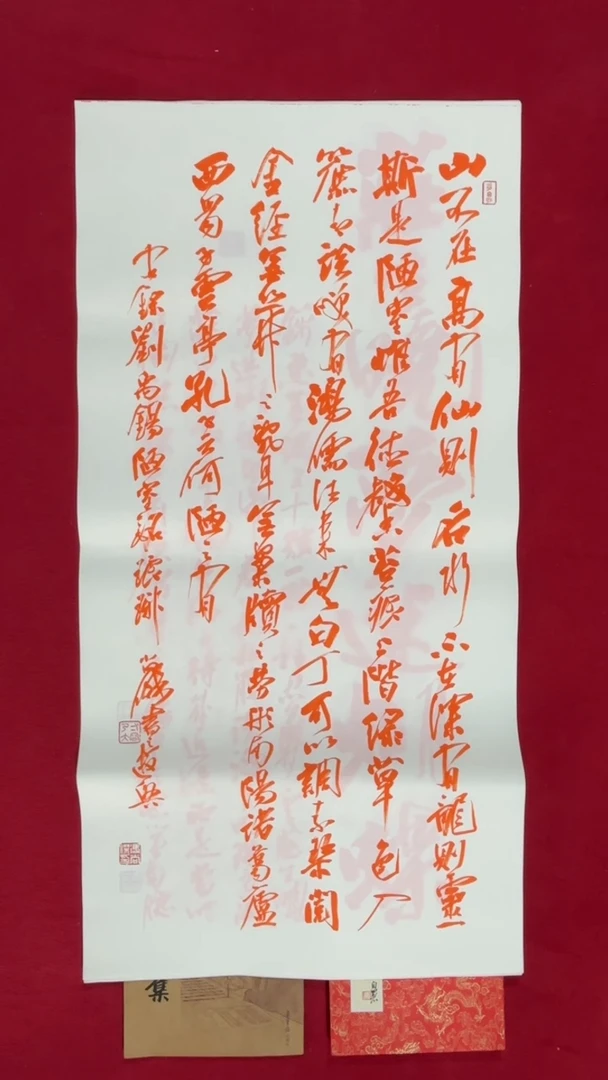 山不在高有仙則名水不在深有龍則靈一
斯是陋室惟吾德馨苔痕上階綠草色入
簾青談咲有鴻儒往来無白丁可以調素琴閱
金経無絲竹之亂耳無案牘之勞形南陽諸葛廬
西蜀子雲亭孔子云何陋之有
錄劉禹錫陋室銘 書
集